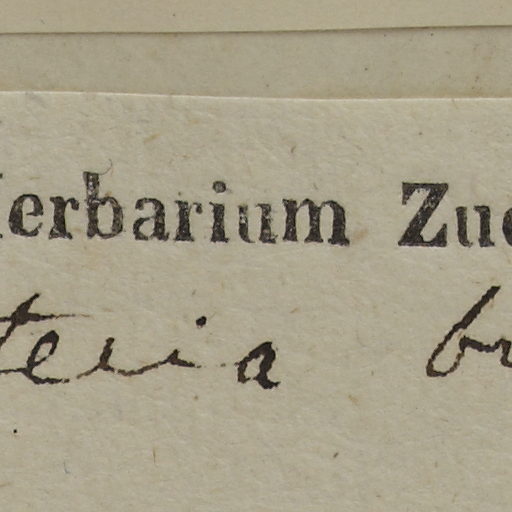 Herbarium Zuc
teria br